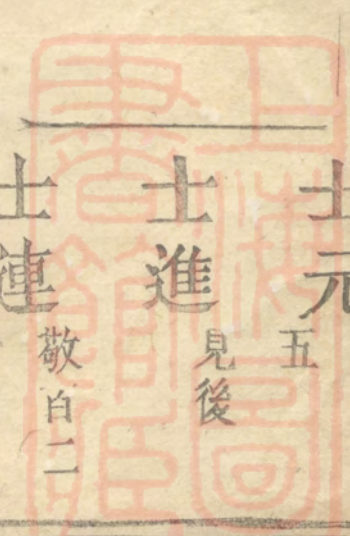 士元 五
士進 見後
士連 敬白二